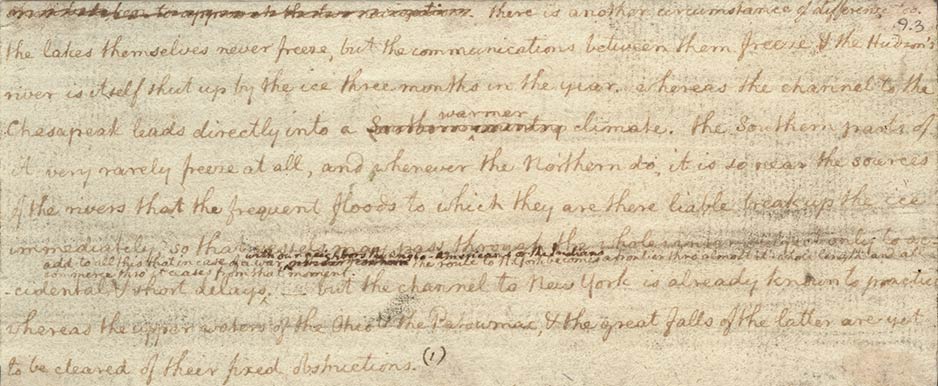 there is another circumstance of difference too.
9.3
the lakes themselves never freeze, but the communications between them freeze, & the Hudson's
river is itself shut up by the ice three months in the year. whereas the channel to the
warmer
Chesapeak leads directly into a Southern country climate. the Southern parts of
it very rarely freeze at all, and whenever the Northern do, it is so near the sources
of the rivers that the frequent floods to which they are there liable break up the ice
immediately, so that vessels may pass through the whole winter subject only to ac-
with our neighbors the Anglo-Americans or the Indians
add to all this that in case of a war the route to N. York becomes a frontier thro' almost it's whole length and all
commerce thro' it ceases from that moment.
cidental & short delays. but the channel to New York is already known to practice
whereas the upper waters of the Ohio & the Patowmac, & the great falls of the latter are yet
to be cleared of their fixed obstructions. (1)